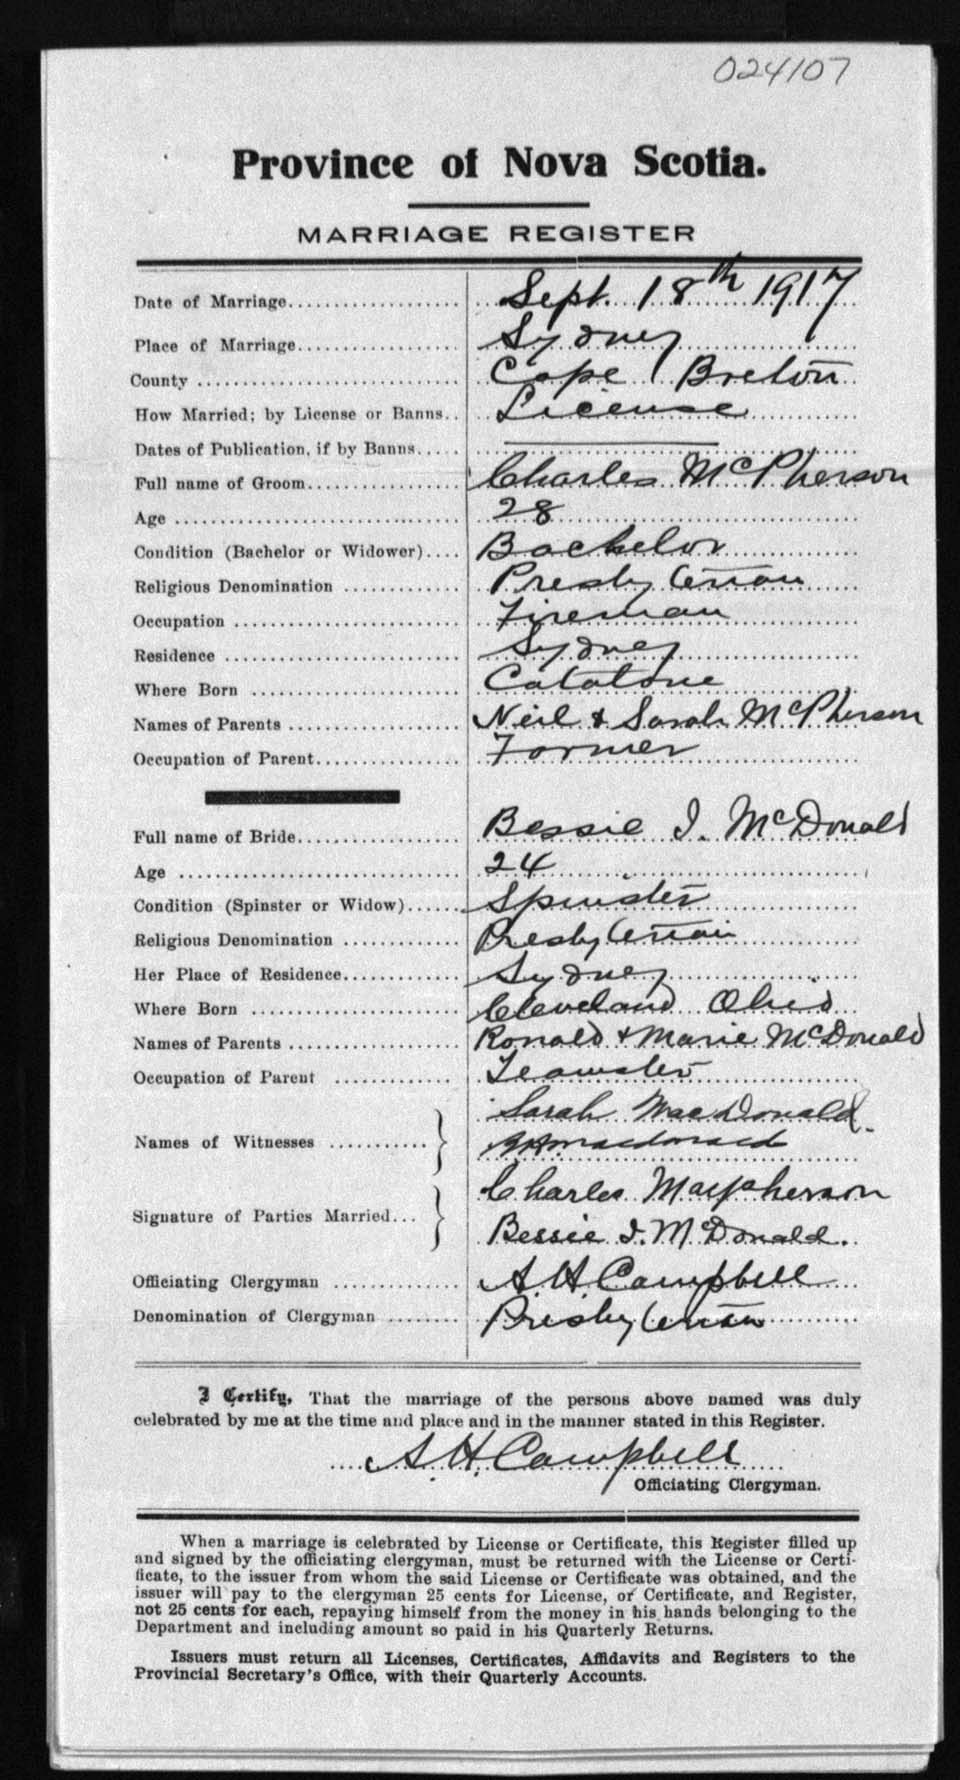 024107
Province of Nova Scotia.
MARRIAGE REGISTER
Date of Marriage Sept. 18th 1917
Place of Marriage Sydney
County Cape Breton
How Married; by License or Banns License
Dates of Publication, if by Banns
Full name of Groom Charles McPherson
Age 28
Condition (Bachelor or Widower) Bachelor
Religious Denomination Presbyterian
Occupation Fireman
Residence Sydney
Where Born Catalone
Names of Parents Neil & Sarah McPherson
Occupation of Parent Farmer
Full name of Bride Bessie I. McDonald
Age 24
Condition (Spinster or Widow) Spinster
Religious Denomination Presbyterian
Her Place of Residence Sydney
Where Born Cleveland Ohio
Names of Parents Ronald & Marie McDonald
Occupation of Parent Teamster
Sarah MacDonald.
Names of Witnesses macdonald
Charles Macpherson
Signature of Parties Married
Bessie I. McDonald.
Officiating Clergyman A. H. Campbell
Denomination of Clergyman Presbyterian
I Certify, That the marriage of the persons above named was duly
celebrated by me at the time and place and in the manner stated in this Register.
A. H. Campbell
Officiating Clergyman.
When a marriage is celebrated by License or Certificate, this Register filled up
and signed by the officiating clergyman, must be returned with the License or Certi-
ficate, to the issuer from whom the said License or Certificate was obtained, and the
issuer will pay to the clergyman 25 cents for License, or Certificate, and Register,
not 25 cents for each, repaying himself from the money in his hands belonging to the
Department and including amount so paid in his Quarterly Returns.
Issuers must return all Licenses, Certificates, Affidavits and Registers to the
Provincial Secretary's Office, with their Quarterly Accounts.